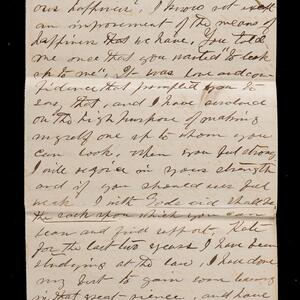 our happiness", I know not except
an improvement of the means of
happiness that we have. You told
me once that you wanted "to look
up to me". It was love and con-
fidence that prompted you to
say that, and I have resolved
on the high purpose of making
myself one up to whom you
can look. When you feel strong
I will rejoice in your strength
and if you should ever feel
weak I with Gods aid shall be
the rock upon which you can
lean and find support. Kate
for the last two years I have been
studying at the law, I have done
my best to gain some
in that great science, and have